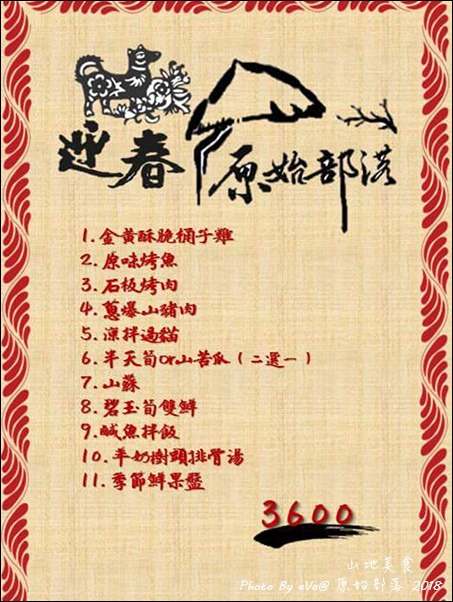 迎春
原始部落
1.金黃酥脆桶子雞
2.原味烤魚
3.石板烤肉
4.蔥爆山豬肉
5.涼拌過貓
6.半天筍or山苦瓜(二選一)
7.山蘇
8.碧玉筍雙鮮
9.鹹魚拌飯
10.羊奶樹頭排骨湯
11.季節鮮果盤
3600
山地美食
Photo By eVa@ 原始部落 2018